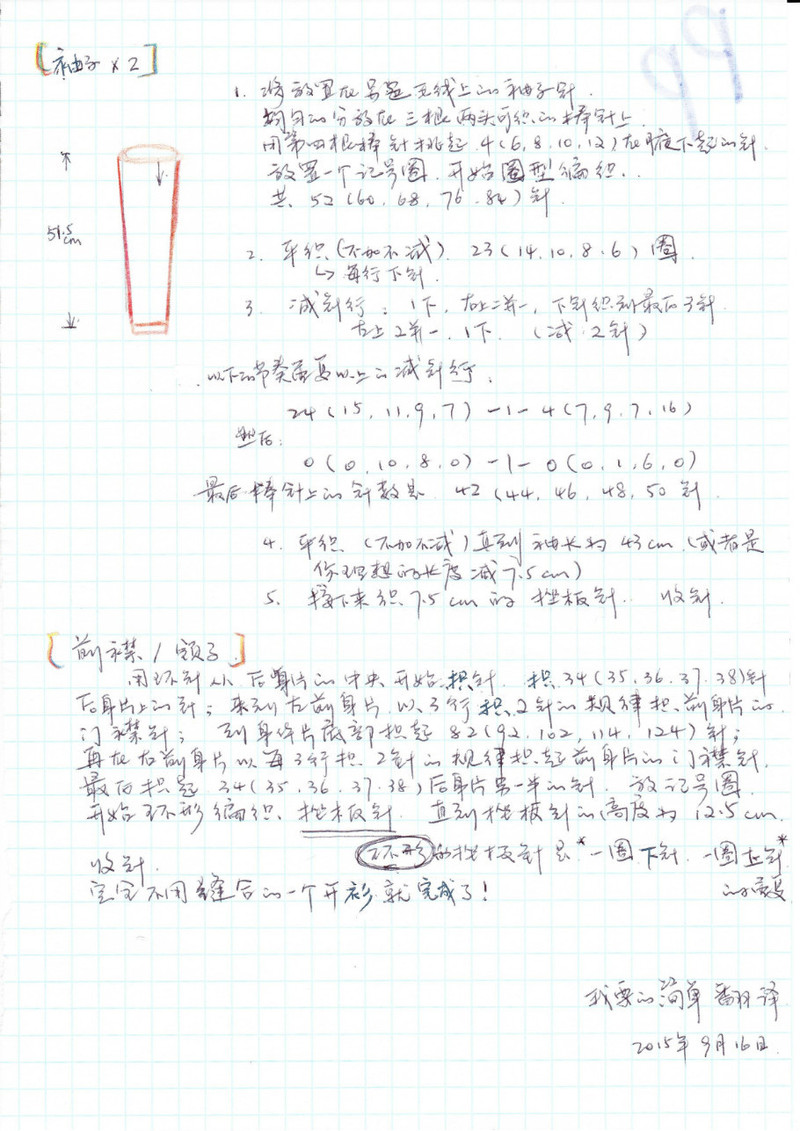 [袖子 x 2]
1. 将放置在另空无线上的袖子针.
均匀的分放在三根两头可织的棒针上.
用第四根棒针挑起 4(6,8,10,12)在腋下起的针
放置一个记号圈. 开始圈型编织..
共 52 (60, 68, 76, 84) 针.
51.5
cm
2. 平织 (不加不减). 23 (14, 10, 8, 6) 圈.
↳ 每行下针.
3. 减针行: 1下, 右上二并一, 下针织到最后3针
左上2并一, 1下. (减2针)
以下的节奏重复以上的减针行:
24 (15, 11, 9, 7) -1- 4 (7, 9, 7, 16)
然后:
0 (0, 10, 8, 0) -1- 0 (0, 1, 6, 0)
最后棒针上的针数是 42 (44, 46, 48, 50 针.
4. 平织. (不加不减) 直到袖长为 43 cm. (或者是
你理想的长度减 7.5 cm)
5. 接下来织 7.5 cm 的 搓板针. 收针.
[前襟 / 领子]
用环针从后身片的中央开始挑针. 挑 34 (35, 36, 37, 38) 针
后身片上的针; 来到左前身片. 以3行挑2针的规律挑前身片的
门襟针; 到身体片底部挑起 82 (92, 102, 114, 124) 针;
再在右前身片以每3行挑2针的规律挑起前身片的门襟针.
最后挑起 34 (35, 36, 37, 38) 后身片另一半的针. 放记号圈.
开始环形编织. 搓板针. 直到搓板针的高度为 12.5 cm.
收针.
环形的搓板针是 *一圈下针. 一圈上针*
的重复
完全不用缝合的一个开衫就完成了!
我要的简单 翻译
2015年9月16日